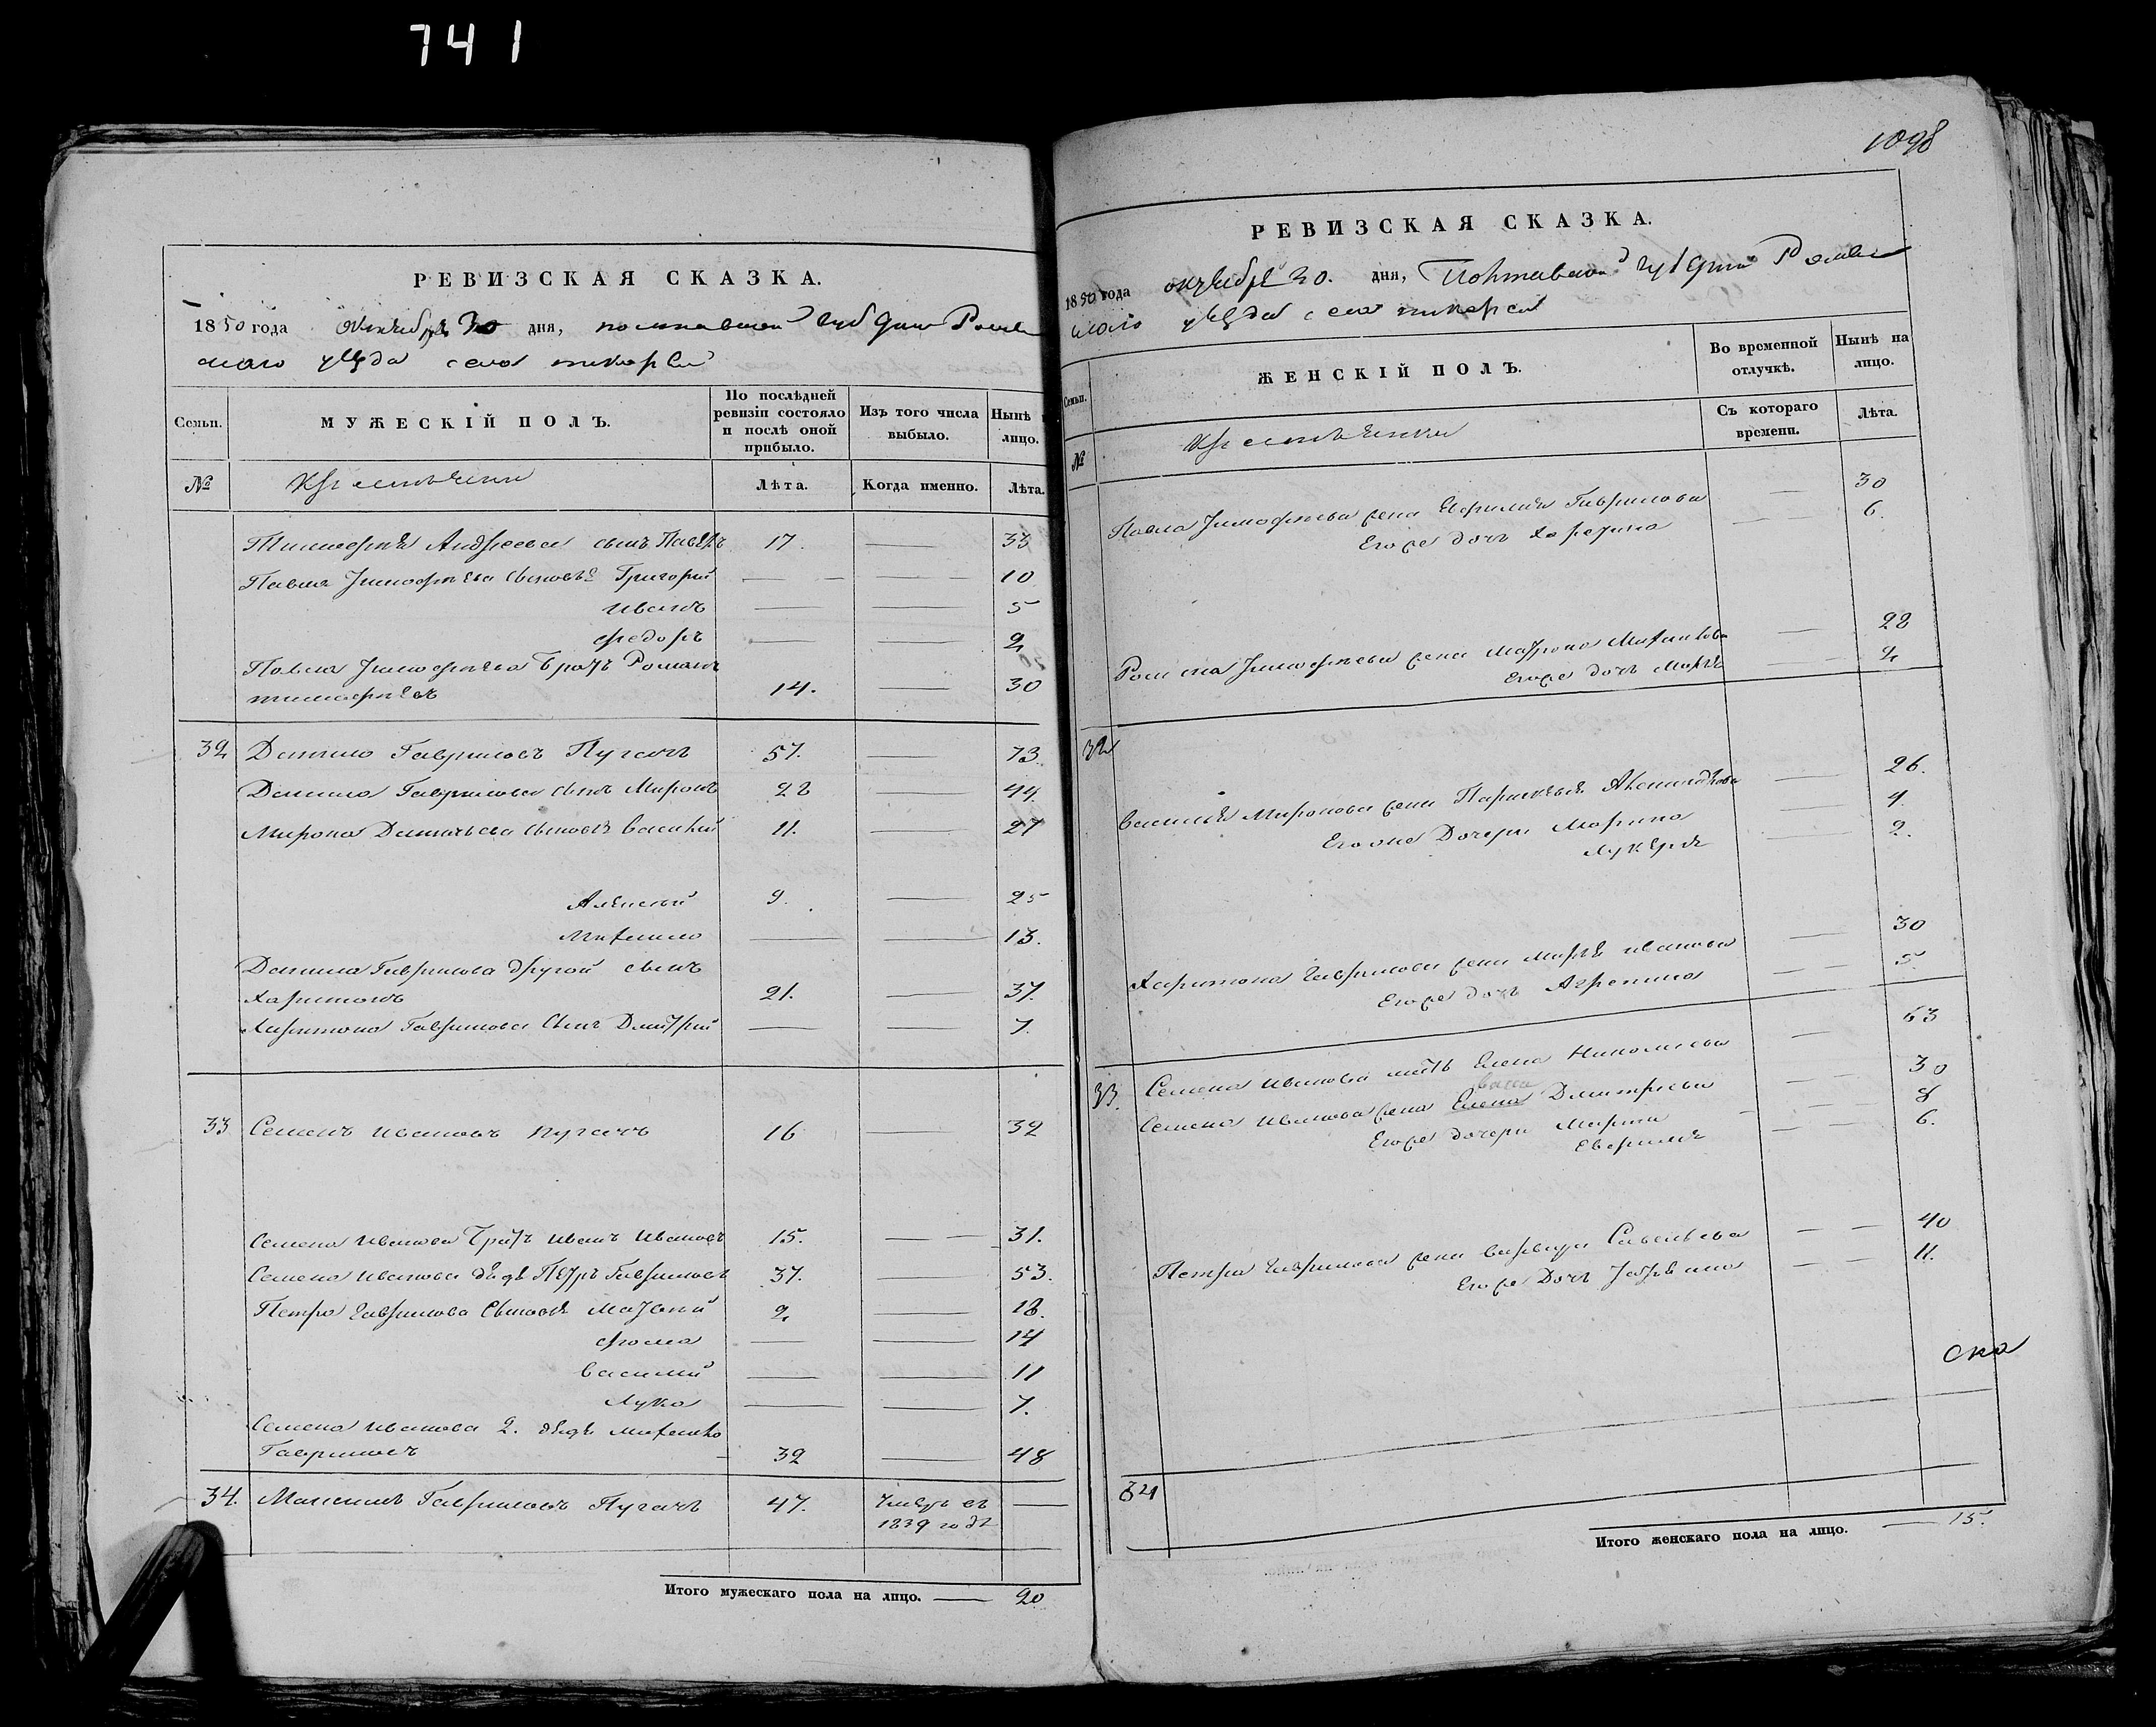 741
РЕВИЗСКАЯ СКАЗКА.
1850 года октября 30 дня, полтавской губернии Ромен
скаго уѣзда села
Семьи. МУЖЕСКІЙ ПОЛЪ. По послѣдней ревизіи состояло и послѣ оной прибыло. Изъ того числа выбыло. Нынѣ лицо.
№ Крестьяне Лѣта. Когда именно. Лѣта.
Тимофея Андреева сынъ Павелъ 17. — 33
Павла Тимофѣева сыновья Григорий — — 10
Иванъ — — 5
Федоръ — — 2
Павла Тимофѣева братъ Романъ
тимофѣевъ 14. — 30
32 Данило Гавриловъ Пугачъ 57. — 73.
Данила Гаврилова сынъ Миронъ 28 — 44.
Мирона Данильева сыновья Василий 11. — 27
Алексѣй 9. — 25
Михайло — — 13.
Данила Гаврилова другой сынъ
Харитонъ 21. — 37.
Харитона Гаврилова сынъ Дмитрий — — 7.
33 Семенъ Ивановъ Пугачъ 16 — 32
Семена Иванова братъ Иванъ Ивановъ 15. — 31.
Семена Иванова дядя Петръ Гавриловъ 37. — 53.
Петра Гаврилова сыновья Матвий 2 — 18.
Фома — — 14
Василий — — 11
Лука — — 7.
Семена Иванова 2. дядя Михайло
Гавриловъ 32 — 48
34. Максимъ Гавриловъ Пугачъ 47. умеръ въ —
1839 годѣ
Итого мужескаго пола на лицо. — 20
1098
РЕВИЗСКАЯ СКАЗКА.
1850 года октября 30. дня, Полтавской губернии Ромен
скаго уѣзда села
Семьи. ЖЕНСКІЙ ПОЛЪ. Во временной отлучкѣ. Нынѣ на лицо.
№ Крестьянки Съ котораго времени. Лѣта.
Павла Тимофѣева жена Гаврилова — 30
Егоже дочь — 6.
Романа Тимофѣева жена Матрона Михайлова — 28
Егоже дочь Марья — 2
32
Василья Миронова жена Параскевья — 26.
Егоже дочери Марина — 4.
Лукерья — 2.
Харитона Гаврилова жена Марья Иванова — 30
Егоже дочь Агрепина — 5.
33. Семена Иванова мать Елена Николаева — 63
Семена Иванова жена Елена Дмитриева — 30
Егоже дочери Марина — 8
— 6.
Петра Гаврилова жена Варвара Савельева — 40
Егоже дочь — 11.
ска
34
Итого женскаго пола на лицо. — 15.